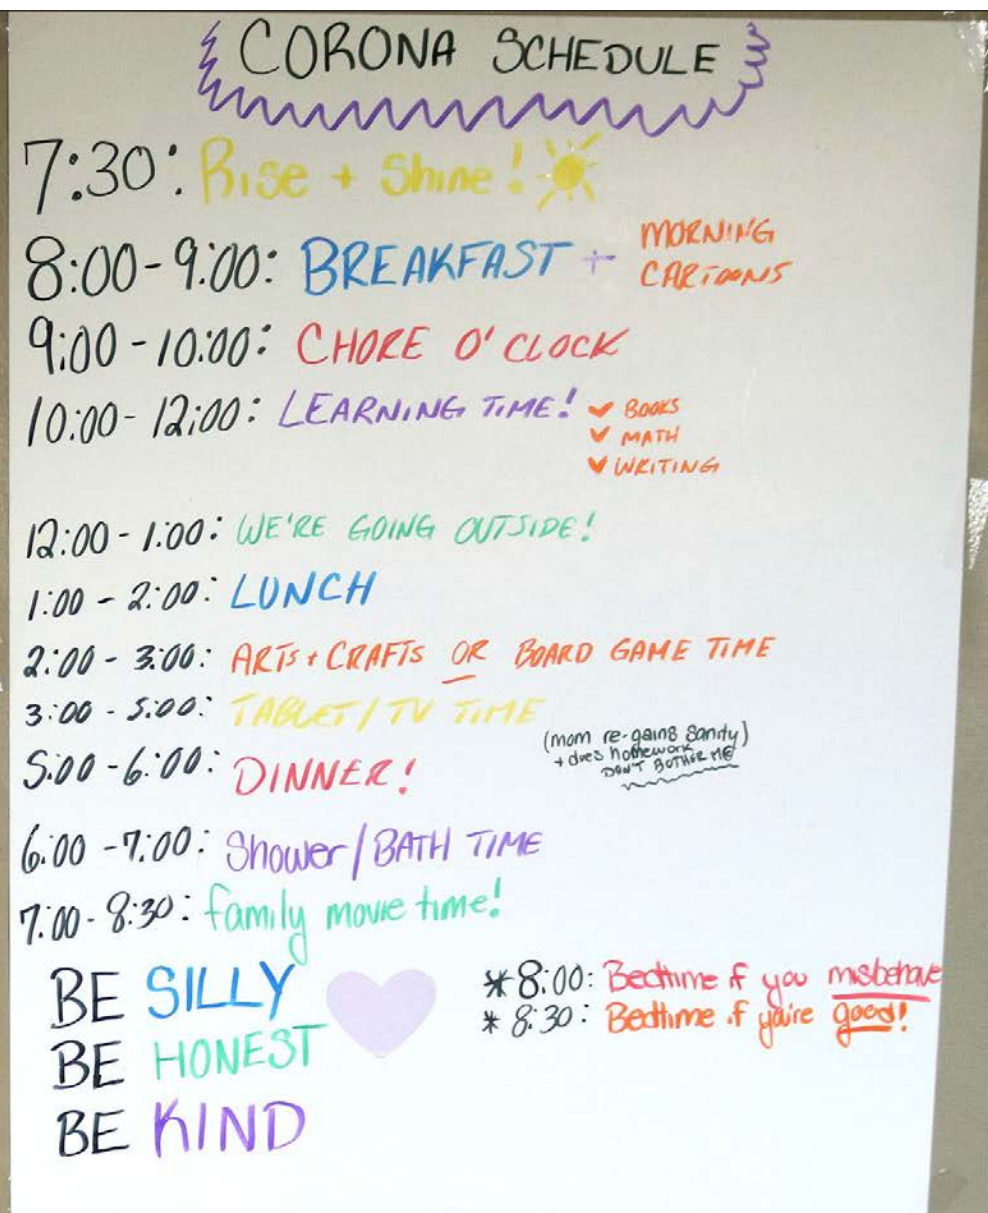 CORONA SCHEDULE
7:30: Rise + Shine!
8:00-9:00: BREAKFAST + MORNING
CARTOONS
9:00-10:00: CHORE O'CLOCK
10:00-12:00: LEARNING TIME! ✓ BOOKS
✓ MATH
✓ WRITING
12:00-1:00: WE'RE GOING OUTSIDE!
1:00-2:00: LUNCH
2:00-3:00: ARTS + CRAFTS OR BOARD GAME TIME
3:00-5:00: TABLET/TV TIME
(mom re-gains sanity)
+ does homework
DON'T BOTHER ME
5:00-6:00: DINNER!
6:00-7:00: Shower/BATH TIME
7:00-8:30: family movie time!
BE SILLY
BE HONEST
BE KIND
*8:00: Bedtime if you misbehave
*8:30: Bedtime if you're good!